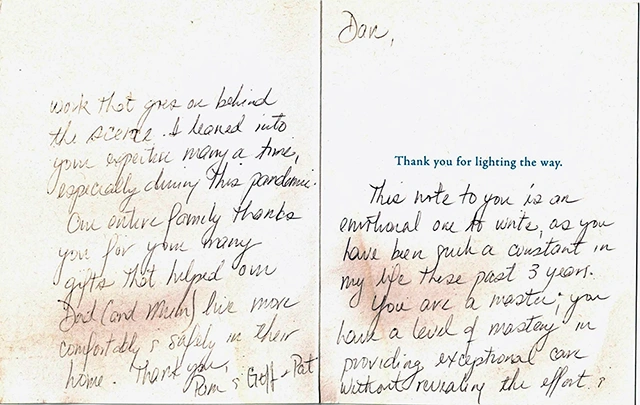 Dan,
Thank you for lighting the way.
This note to you is an
emotional one to write, as you
have been such a constant in
my life these past 3 years.
You are a master; you
have a level of mastery in
providing exceptional care
without revealing the effort &
work that goes on behind
the scene. I leaned into
your expertise many a time,
especially during this pandemic.
Our entire family thanks
you for your many
gifts that helped our
Dad (and Mum) live more
comfortably & safely in their
home. Thank you,
Pam & Geff + Pat